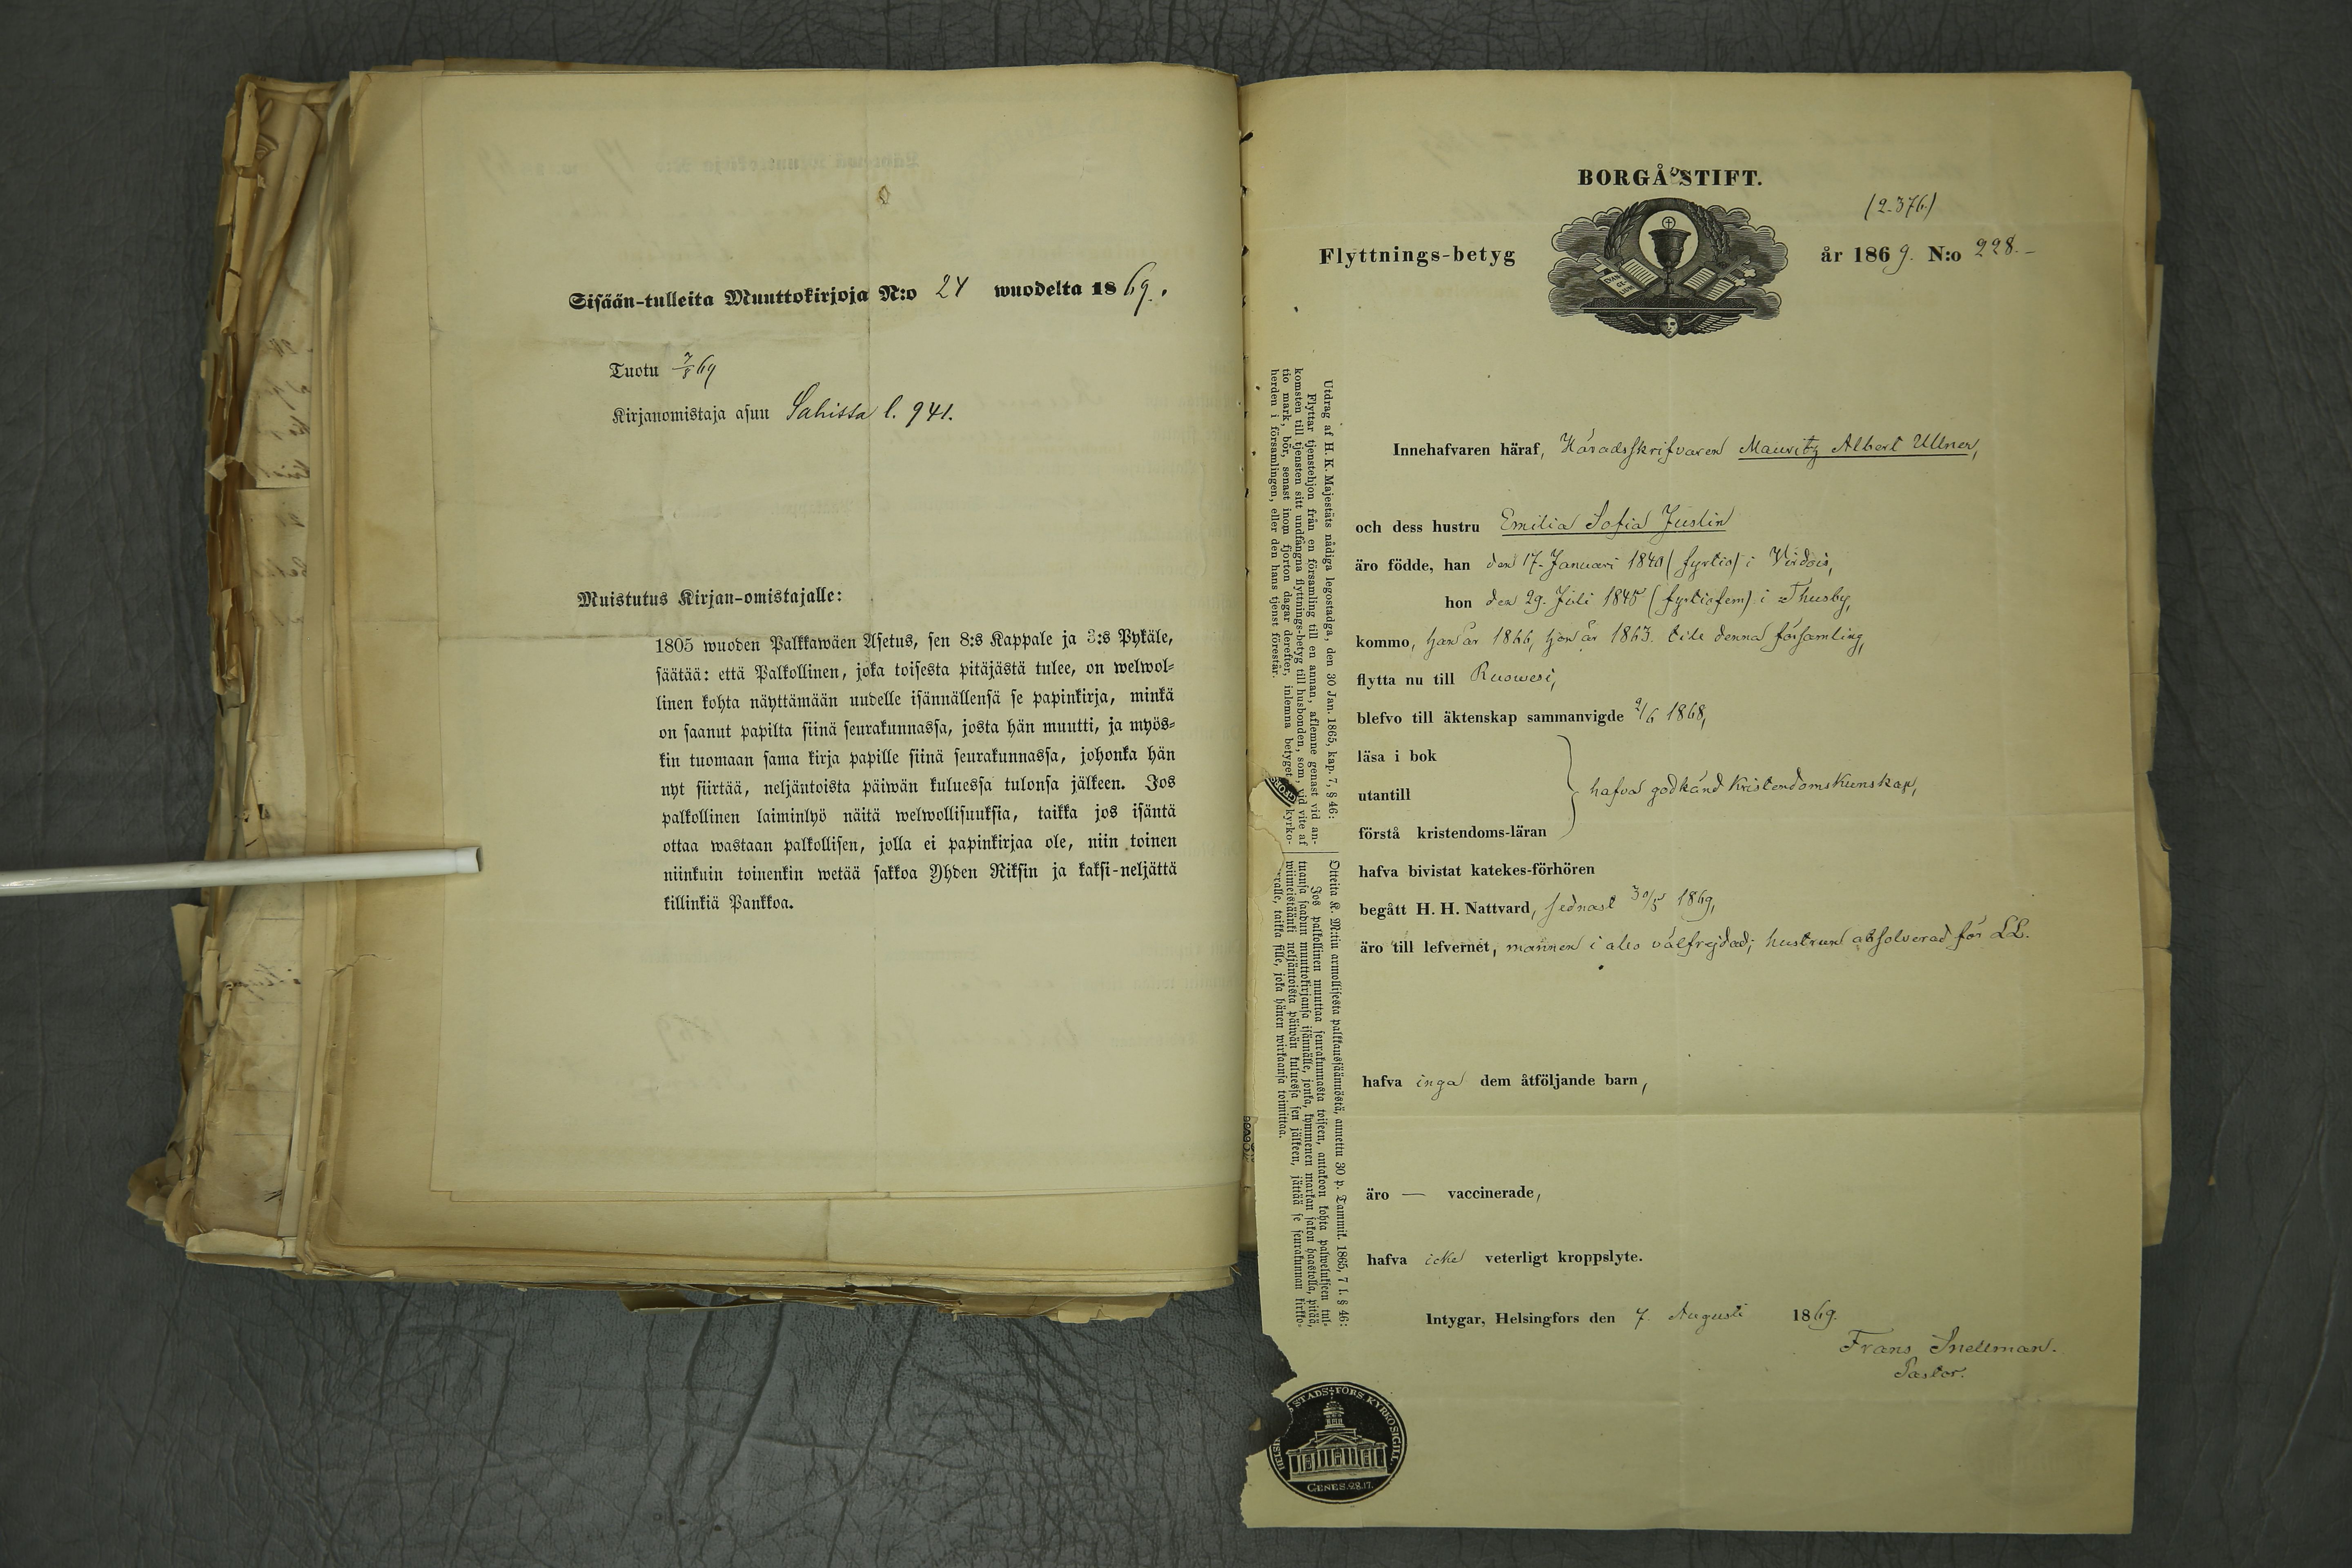 Sisään-tulleita Muuttokirjoja N:o 24 wuodelta 1869.
Tuotu 7/8 69
Kirjanomistaja asuu Sahissa l. 941.
Muistutus Kirjan-omistajalle:
1805 wuoden Palkkawäen Asetus, sen 8:s Kappale ja 3:s Pykäle,
säätää: että Palkollinen, joka toisesta pitäjästä tulee, on welwol-
linen kohta näyttämään uudelle isännällensä se papinkirja, minkä
on saanut papilta siinä seurakunnassa, josta hän muutti, ja myös-
kin tuomaan sama kirja papille siinä seurakunnassa, johonka hän
nyt siirtää, neljäntoista päiwän kuluessa tulonsa jälkeen. Jos
palkollinen laiminlyö näitä welwollisuuksia, taikka jos isäntä
ottaa wastaan palkollisen, jolla ei papinkirjaa ole, niin toinen
niinkuin toinenkin wetää sakkoa Yhden Riksin ja kaksi-neljättä
killinkiä Pankkoa.
BORGÅ STIFT.
(2.376.)
Flyttnings-betyg år 1869. N:o 228.-
EVAN GE LIUM
Innehafvaren häraf, Häradsskrifvaren Mauritz Albert Ullner,
och dess hustru Emilia Sofia Juslin
äro födde, han den 17. Januari 1840 (fyrtio) i Virdois,
hon den 29. Juli 1845 (fyrtiofem) i Thusby,
kommo, han år 1866, hon år 1863. till denna församling,
flytta nu till Ruowesi,
blefvo till äktenskap sammanvigde 2/6 1868,
läsa i bok
utantill
hafva godkänd Kristendomskunskap,
förstå kristendoms-läran
hafva bivistat katekes-förhören
begått H. H. Nattvard, sednast 30/5 1869,
äro till lefvernet, mannen i allo välfrejdad; hustrun absolverad för LL.
hafva inga dem åtföljande barn,
äro — vaccinerade,
hafva icke veterligt kroppslyte.
Intygar, Helsingfors den 7. Augusti 1869.
Frans Snellman.
Pastor.
Utdrag af H. K. Majestäts nådiga legostadga, den 30 Jan. 1865, kap. 7, § 46:
Flyttar tjenstehjon från en församling till en annan, aflemne genast vid an-
komsten till tjensten sitt undfångna flyttnings-betyg till husbonden, som, vid vite af
tio mark, bör, senast inom fjorton dagar derefter, inlemna betyget kyrko-
herden i församlingen, eller den hans tjenst förestår.
Otteita K. M:tin armollisesta palkkaussäännöstä, annettu 30 p. Tammik. 1865, 7 l. § 46:
Jos palkollinen muuttaa seurakunnasta toiseen, antakoon kohta palwelukseen tul-
tuansa saadun muuttokirjansa isännälle, jonka, kymmenen markan sakon haastolla, pitää,
wiimeistäänki neljäntoista päiwän kuluessa sen jälkeen, jättää se seurakunnan kirkko-
rralle, taikka sille, joka hänen wirkaansa toimittaa.
STADS FÖRS. KYRKOSIGILL.
GENES. 28.17.